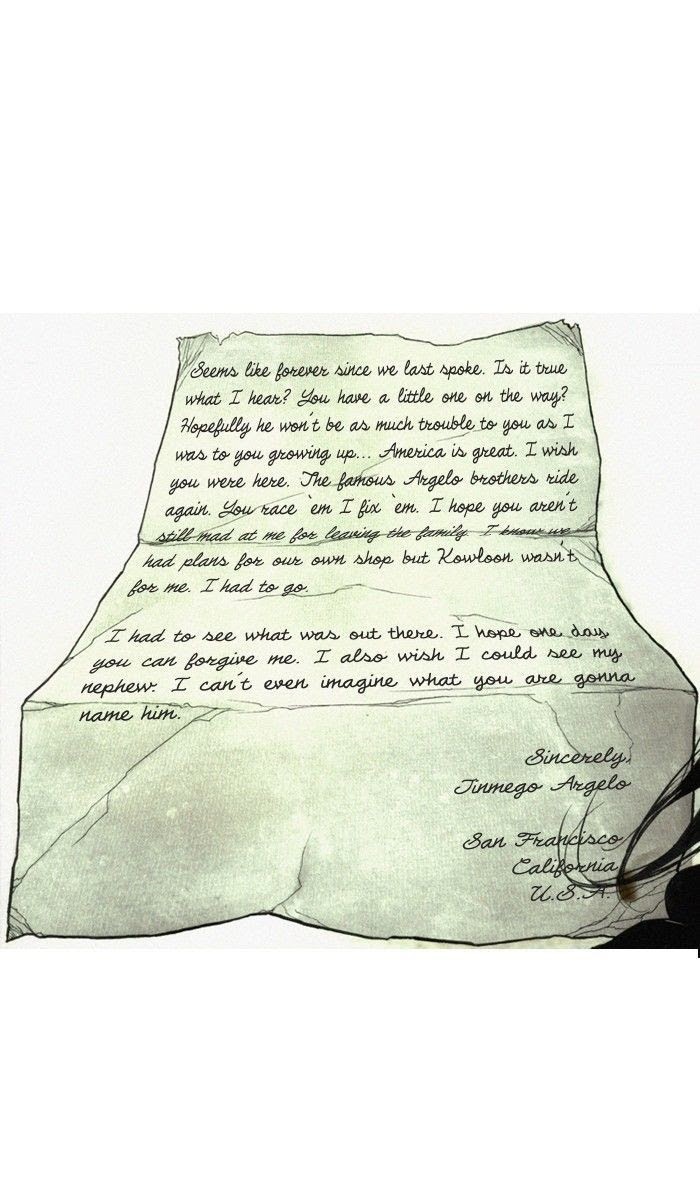 Seems like forever since we last spoke. Is it true
what I hear? You have a little one on the way?
Hopefully he won't be as much trouble to you as I
was to you growing up... America is great. I wish
you were here. The famous Argelo brothers ride
again. You race 'em I fix 'em. I hope you aren't
still mad at me for leaving the family. I know we
had plans for our own shop but Kowloon wasn't
for me. I had to go.
I had to see what was out there. I hope one day
you can forgive me. I also wish I could see my
nephew. I can't even imagine what you are gonna
name him.
Sincerely,
Jinmego Argelo
San Francisco
California,
U.S.A.